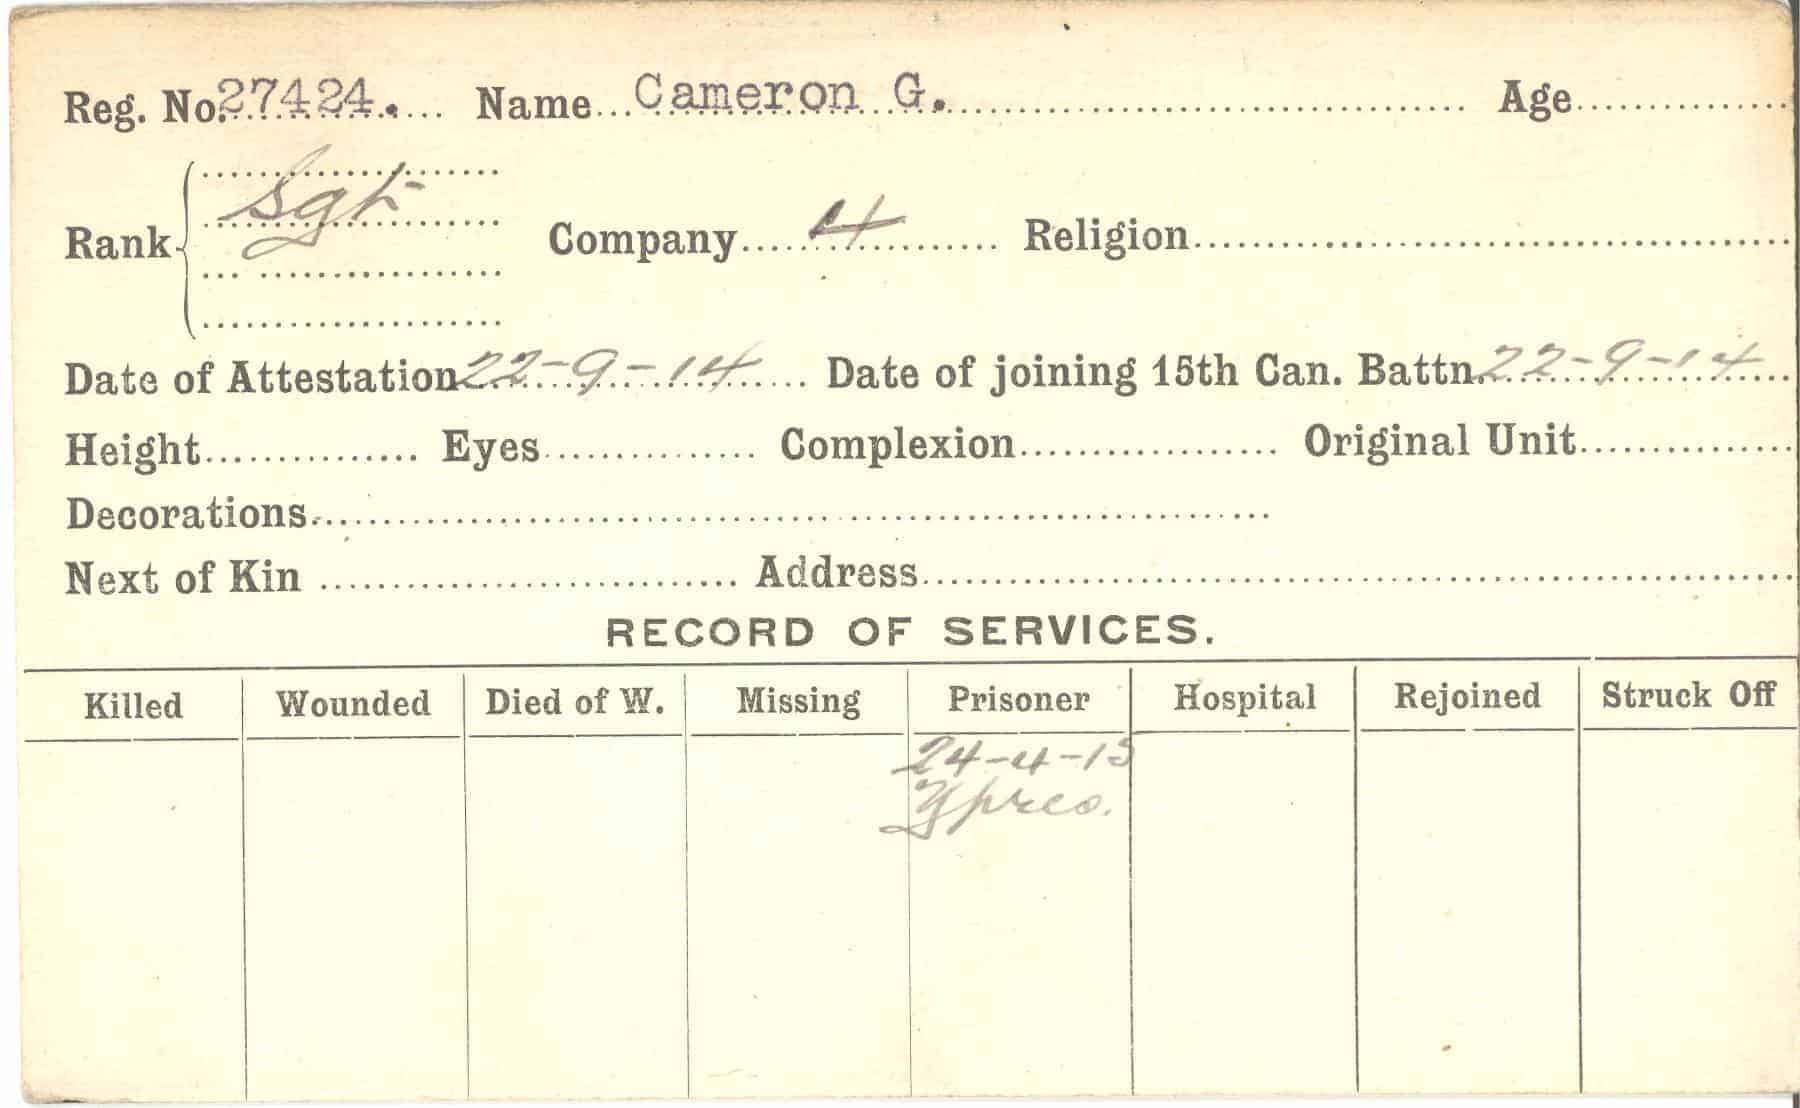 Reg. No. 27424. Name Cameron G. Age
Sgt
Rank Company 4 Religion
Date of Attestation 22-9-14 Date of joining 15th Can. Battn. 22-9-14
Height Eyes Complexion Original Unit
Decorations
Next of Kin Address
RECORD OF SERVICES.
Killed Wounded Died of W. Missing Prisoner Hospital Rejoined Struck Off
24-4-15
Ypres.